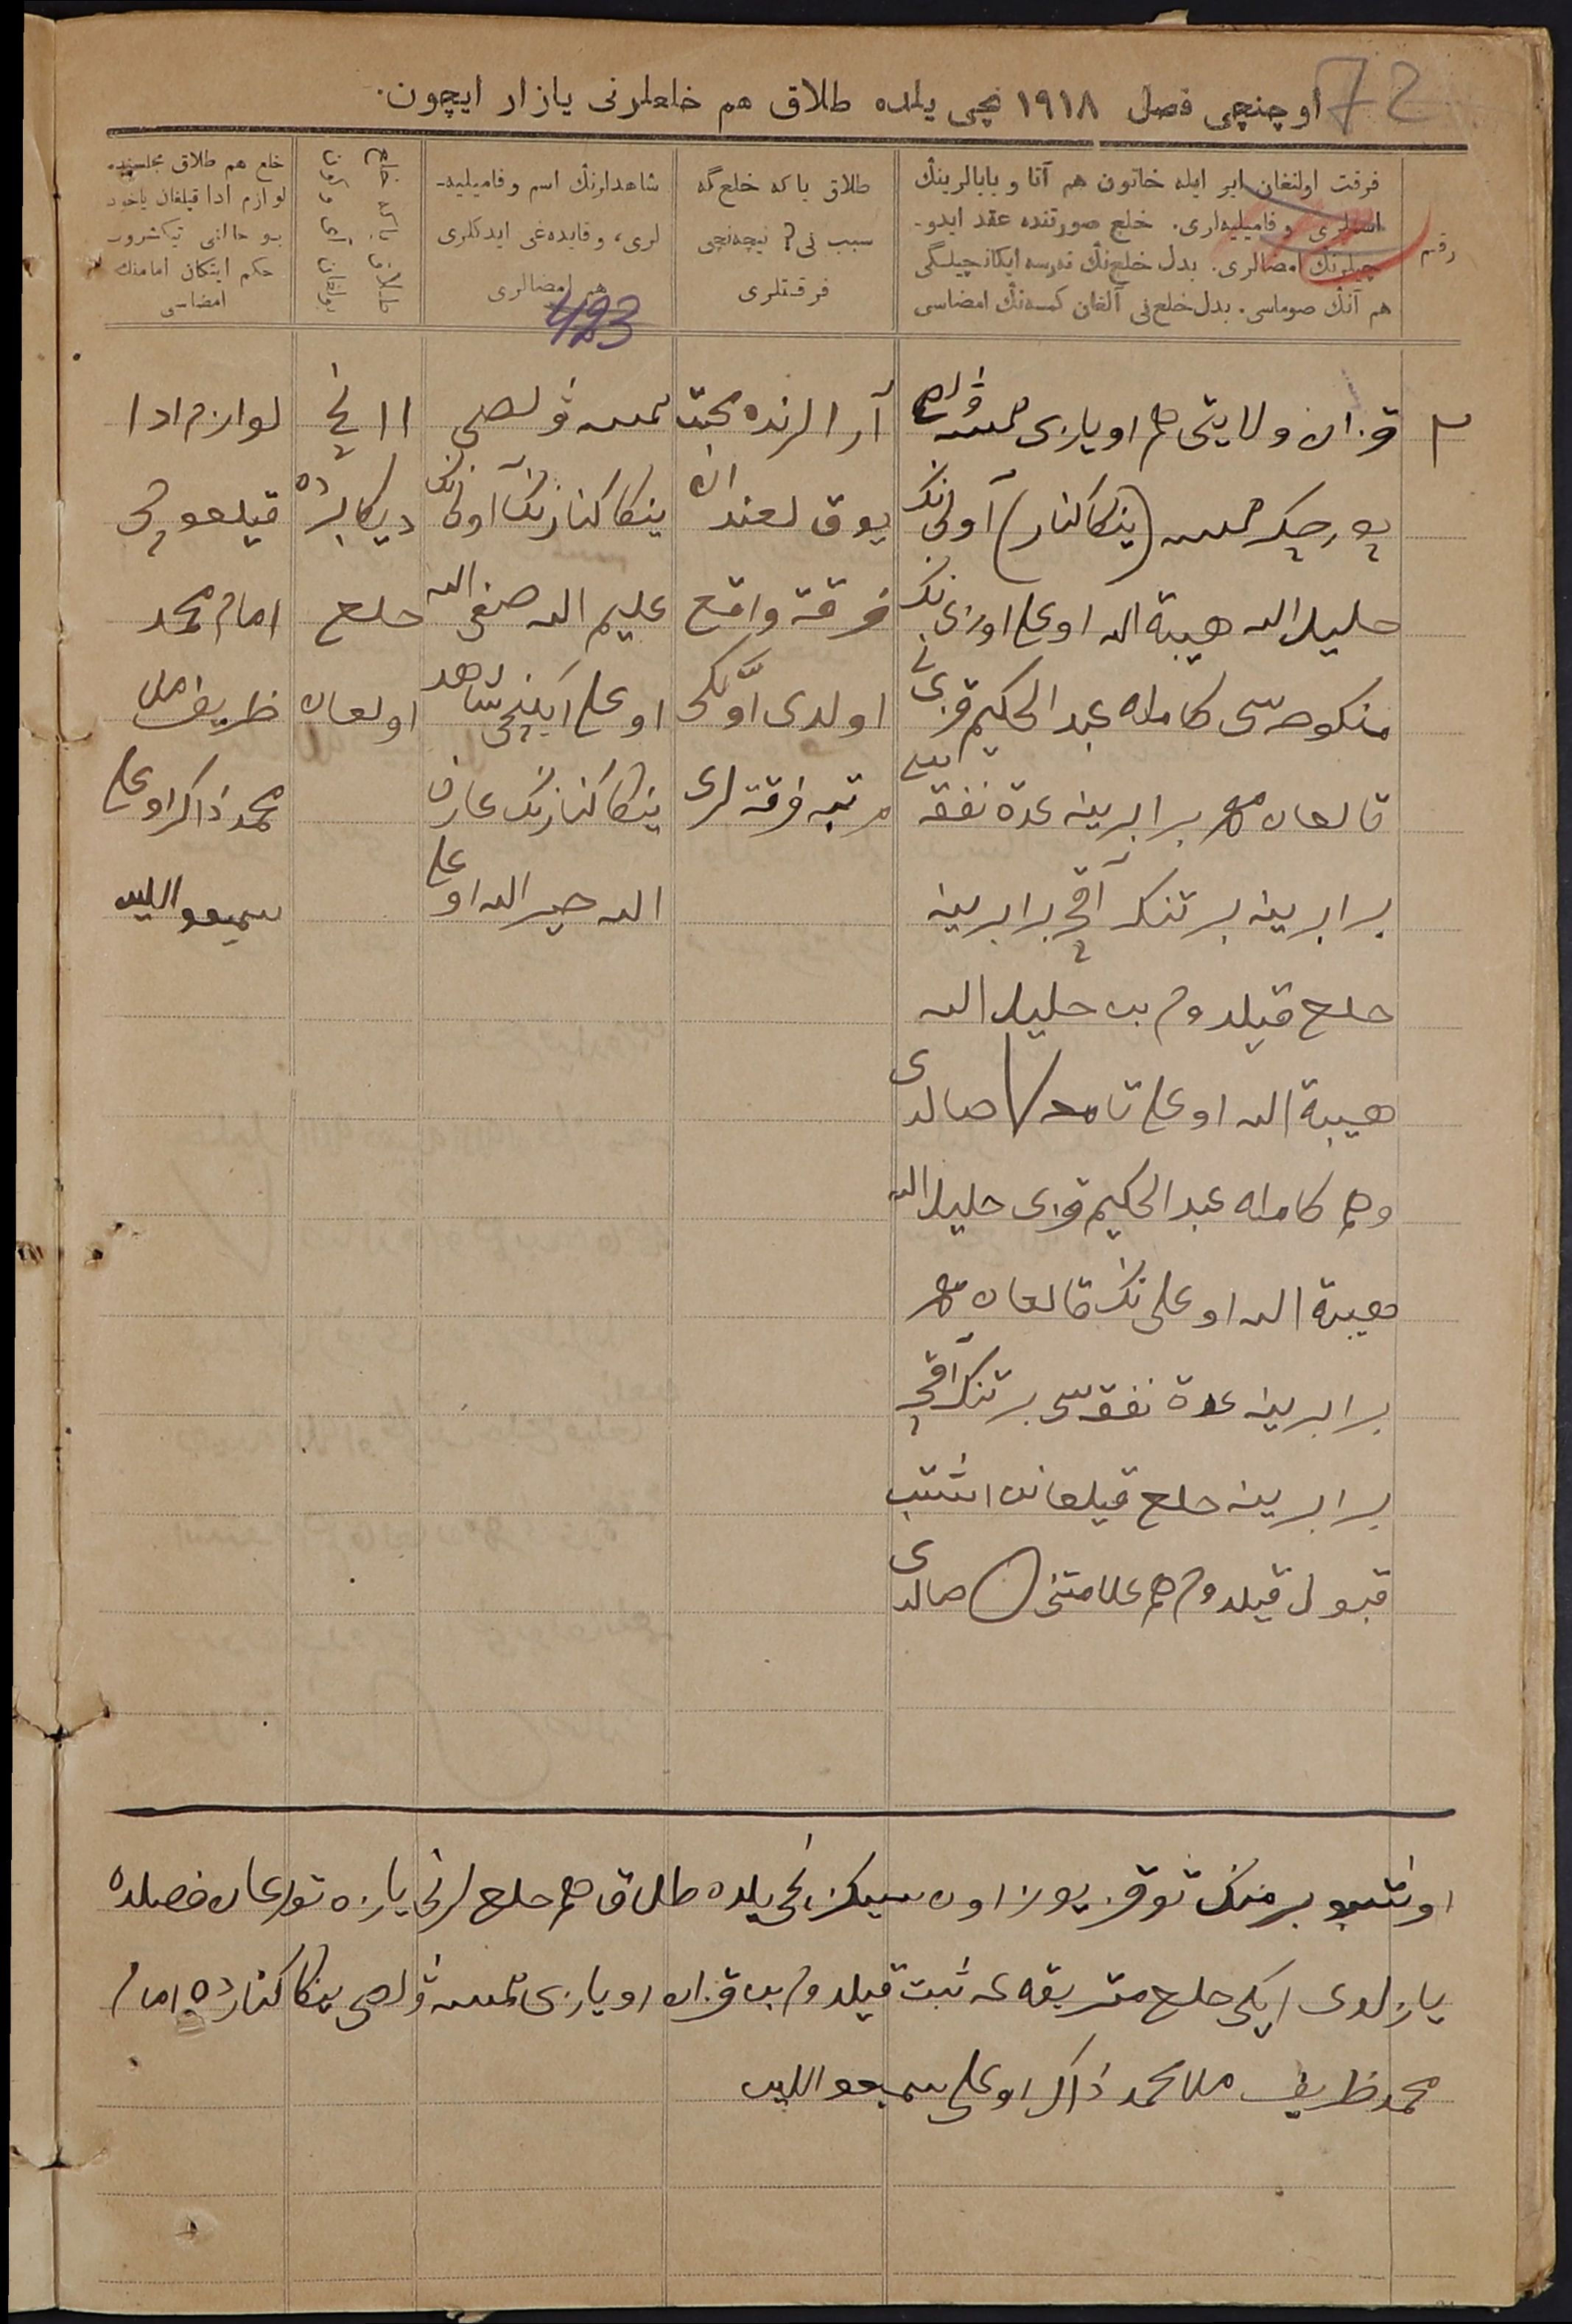 72
اوچنچی فصل ۱۹۱۸ نچی یلده طلاق هم خلعلرنی یازار ایچون.
رقم
فرقت اولنغان ایر ایله خاتون هم آتا و بابالرینڭ
اسملری و فامیلیه‌لری. خلع صورتنده عقد ایدو-
چیلرنڭ امضالری. بدل خلع‌نڭ نه‌رسه ایکانچیلگی
هم آنڭ صوماسی. بدل خلع‌نی آلغان کمسه‌نڭ امضاسی
طلاق یا که خلع گه
سبب نی؟ نیچه‌نچی
فرقتلری
شاهدلرنڭ اسم و فامیلیه-
لری، و قایده‌غی ایدکلری
هم امضالری
423
خلع هم طلاق مجلسنده
لوازم ادا قیلغان یاخود
بو حالنی تیکشروب
حکم ایتکان امامنڭ
امضاسی
۲
قزان ولایتی هم اویازی
(ینکا کنار) آولی نڭ
خلیل الله هیبة الله اوغلی اوزی نڭ
منکوحه‌سی کامله عبد الحکیم قزی نی
قالغان مهر برابرینه عدة نفقه سی
برابرینه بر تنکه آقچه برابرینه
خلع قیلدوم بن خلیل الله
هیبة الله اوغلی تامغا صالدی
وهم کامله عبد الحکیم قزی خلیل الله
هیبة الله اوغلی نڭ قالغان مهر
برابرینه عدة نفقه‌سی بر تنکه آقچه
برابرینه خلع قیلغانن اشتب
قبول قیلدوم هم علامتنی صالدی
آرالرنده محبت
یوق لغندان
فرقة واقع
اولدی اوّلگی
مرتبه فرقة لری
ینکا کنارنڭ آولی نڭ
علیم الله صفی الله
اوغلی ایکنچی شاهد
ینکا کنارنڭ عارف
الله خیر الله اوغلی
۱۱ نچی
دیکابرده
خلع
اولغان
لوازم ادا
قیلغوچی
امام محمد
ظریف ملا
محمد ذاکر اوغلی
سمیعواللین
اوشبو بر منک توقز یوز اون سیکزنچی یلده طلاق هم خلع لرنی یازه تورغان فصلده
یازلدی ایکی خلع متریقه غه ثبت قیلدوم بن قزان اویازی ینکا کنارده امام
محمد ظریف ملا محمد ذاکر اوغلی سمیعواللین